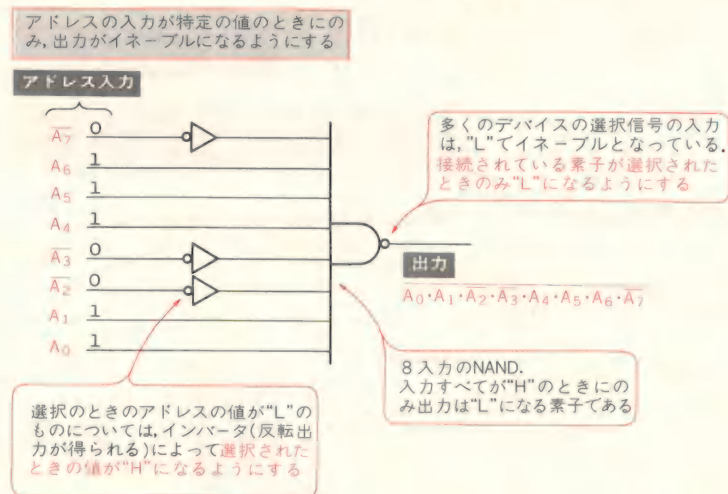 アドレスの入力が特定の値のときにの
み,出力がイネーブルになるようにする
アドレス入力
A̅₇ 0
A₆ 1
A₅ 1
A₄ 1
A̅₃ 0
A̅₂ 0
A₁ 1
A₀ 1
多くのデバイスの選択信号の入力
は,"L"でイネーブルとなっている.
接続されている素子が選択された
ときのみ"L"になるようにする
出力
A₀・A₁・A̅₂・A̅₃・A₄・A₅・A₆・A̅₇
8入力のNAND.
入力すべてが"H"のときにの
み出力は"L"になる素子である
選択のときのアドレスの値が"L"の
ものについては,インバータ(反転出
力が得られる)によって選択された
ときの値が"H"になるようにする